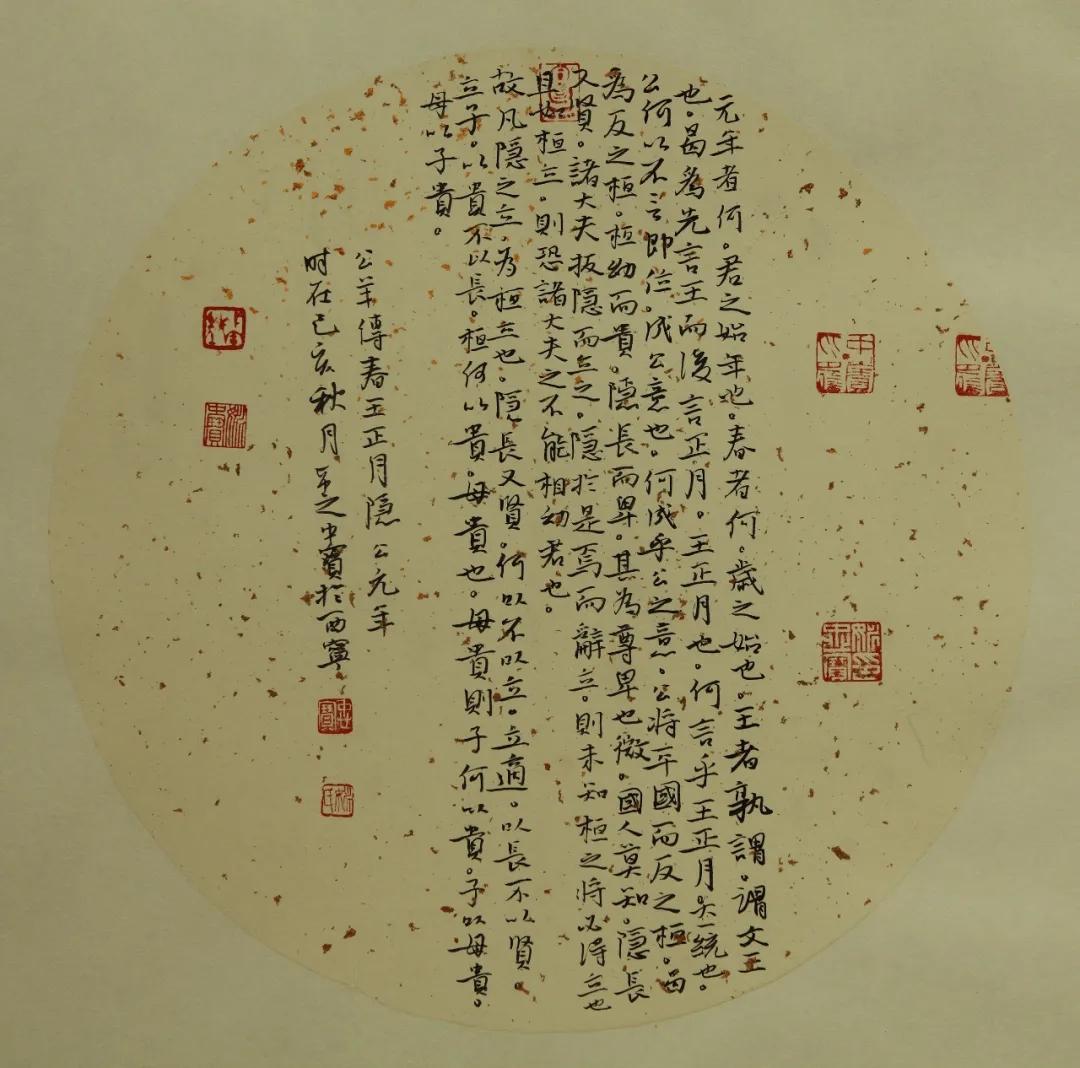 元年者何。君之始年也。春者何。歲之始也。王者孰謂。謂文王
也。曷為先言王而後言正月。王正月也。何言乎王正月。大一統也。
公何以不言即位。成公意也。何成乎公之意。公將平國而反之桓。曷
為反之桓。桓幼而貴。隱長而卑。其為尊卑也微。國人莫知。隱長
又賢。諸大夫扳隱而立之。隱於是焉而辭立。則未知桓之將必得立也
且如桓立。則恐諸大夫之不能相幼君也。
故凡隱之立。為桓立也。隱長又賢。何以不以立。立適。以長不以賢。
立子。以貴不以長。桓何以貴。母貴也。母貴則子何以貴。子以母貴。
母以子貴。
公羊傳春王正月隱公元年
时在己亥秋月之中寶於西寧